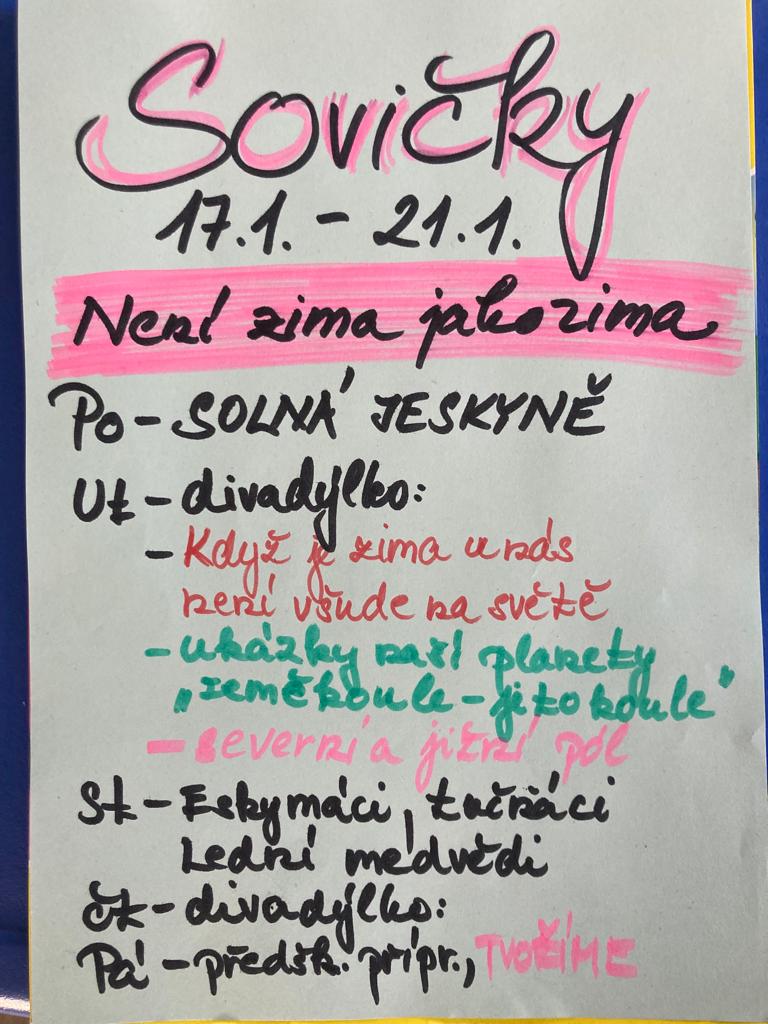 Sovičky
17.1. - 21.1.
Není zima jako zima
Po - SOLNÁ JESKYNĚ
Út - divadýlko:
- Když je zima u nás
není všude na světě
- ukázky naší planety
„zeměkoule - je to koule"
- severní a jižní pól
St - Eskymáci, tučňáci
Lední medvědi
Čt - divadýlko:
Pá - předšk. přípr., TVOŘÍME